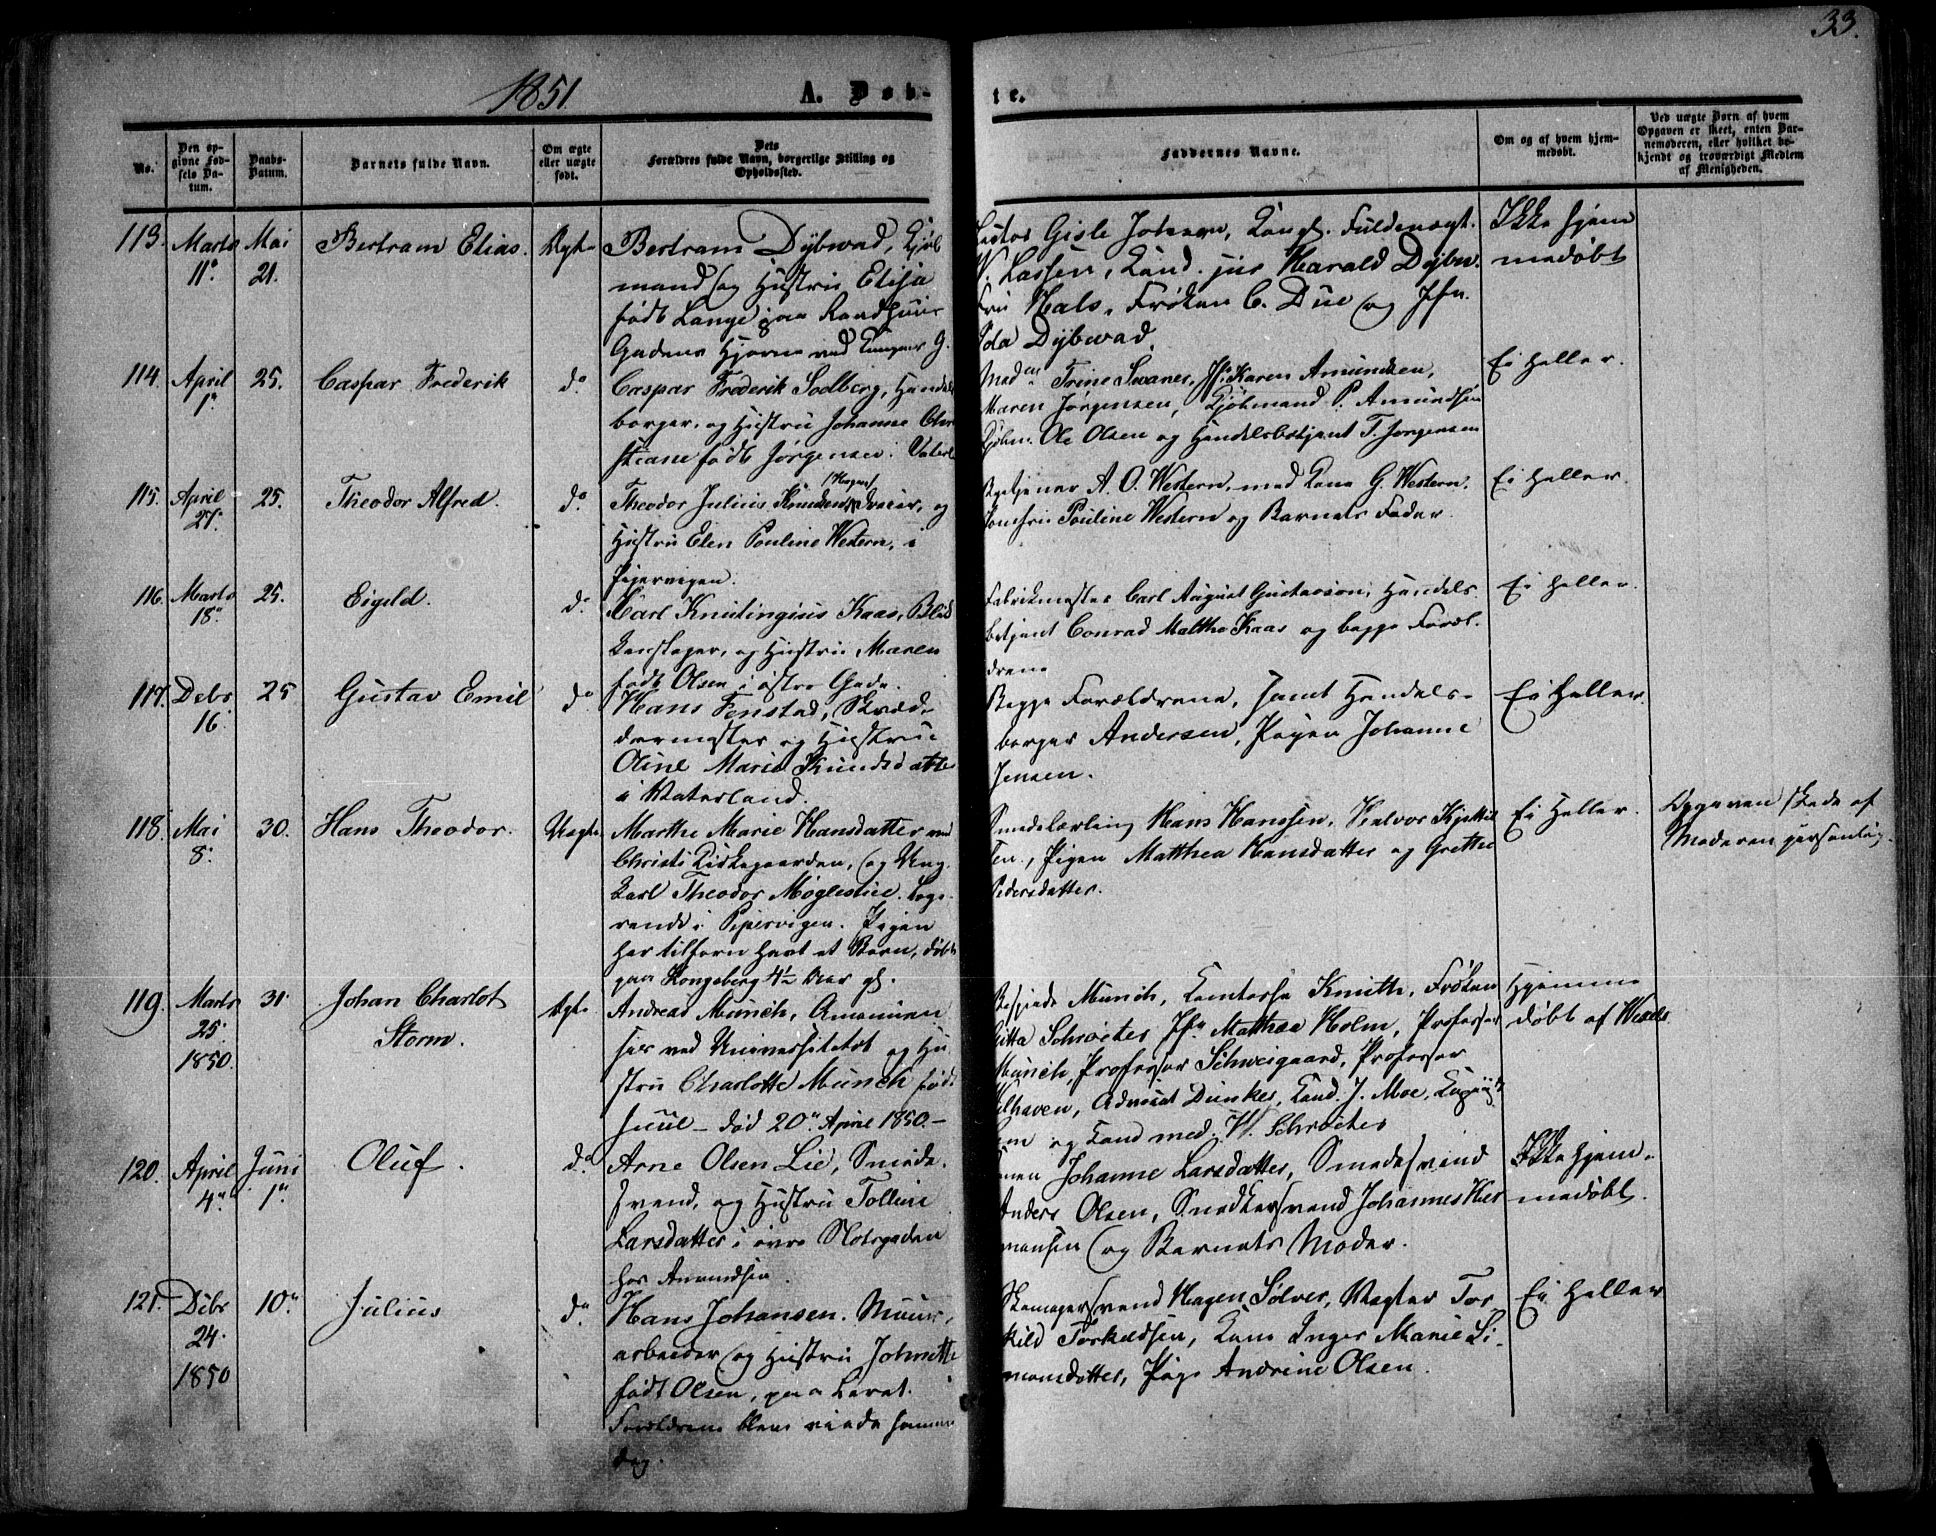 33.
1851
A. Døb-
te.
No.
Den op-
givne Fød-
sels Da-
tum.
Daabs-
Datum.
Barnets fulde Navn.
Om ægte
eller uægte
født.
Dets
Forældres fulde Navn, borgerlige Stilling og
Opholdssted.
Faddernes Navne.
Om og af hvem hjem-
medøbt.
Ved uægte Børn af hvem
Opgaven er skeet, enten Bar-
nemoderen, eller hvilket be-
kjendt og troværdigt Medlem
af Menigheden.
113. Marts 11. Mai 21. Bertram Elias. Ægte
Bertram Dybwad, Kjøb
mand og Hustru Elisa
født Lange paa Raadhuus
Gadens Hjørne ved Kongens G.
Gisle Johnson, Fuldmægt.
Lassen, Cand. jur Harald Dybw.
Fru Hals, Frøken C. Due og Jfr.
Ida Dybwad.
Ikke hjem
medøbt
114. April 1. 25. Caspar Frederik do
Caspar Frederik Sodberg, Handels
borger, og Hustru Johanne Chri
stiane født Jørgensen. Vaterl
Mad. Trine Svanes, Jfr. Karen Amundsen,
Maren Jørgensen, Kjøbmand P. Amundsen
Kjøbm. Ole Olsen og Handelsbetjent T. Jørgensen
Ei heller.
115. April 27. 25. Theodor Alfred. do
Theodor Julius Knudsen, og
Hustru Elen Pouline Western, i
Pipervigen.
A. O. Western, med Kone G. Western,
Jomfru Pouline Western og Barnets Fader.
Ei heller.
116. Marts 18. 25. Eigeld. do
Carl Knutingius Kaas, Blik
kenslager, og Hustru Maren
født Olsen i østre Gade.
Fabrikmester Carl August Gustavson, Handels
betjent Conrad Malthe Kaas og begge Foræl
drene
Ei heller.
117. Debr 16. 25 Gustav Emil do
Hans Fenstad, Skræd-
dermester og Hustrue
Oline Marie Knudsdatter
i Vaterland.
Begge Forældrene, samt Handels-
borger Andersen, Pigen Johanne
Jensen.
Ei heller.
118. Mai 8. 30. Hans Theodor. Uægte
Marthe Marie Hansdatter ved
Christi Kirkegaarden, og Ung
karl Theodor Møglestue. Loge-
rende i Pipervigen. Pigen
har tilforn havt et Barn, døbt
paa Kongsberg 4½ Aar gl.
Hans Hansen, Halvor Kjettil
sen, Pigen Matthea Hansdatter og Grethe
Pedersdatter.
Ei heller.
Opgaven skede af
Moderen personlig.
119. Marts 25. 1850. 31. Johan Charlot
Storm. Ægte
Andreas Münch, Amanuen
sis ved Universitetet og Hu
stru Charlotte Münch født
Juul - død 20. April 1850. -
Münch, Comtesse Knuth, Frøken
Gitta Schroeter, Jfr Matthea Holm, Professor
Münch, Professor Schweigaard, Professor
Welhaven, Advocat Dunker, Cand. J. Moe,
og Cand med. H. Schroeter
Hjemme
døbt af Wexels
120. April 4. Juni 1. Oluf. do
Arne Olsen Lie, Smede-
svend, og Hustru Tolline
Larsdatter i øvre Slotsgaden
hos Amundsen.
Johanne Larsdatter, Smedesvend
Anders Olsen, Snedkersvend Johannes Her
mansen og Barnets Moder.
Ikke hjem-
medøbt.
121. Debr 24. 1850 10. Julius do
Hans Johansen. Muur-
arbeider og Hustru Johnette
født Olsen, paa Løret.
Forældrene bleve viede samme
Dag.
Skomagersvend Hagen Sølver, Vægter Tor
kild Torkildsen, Kone Inger Marie Si-
monsdatter, Pige Andrine Olsen.
Ei heller